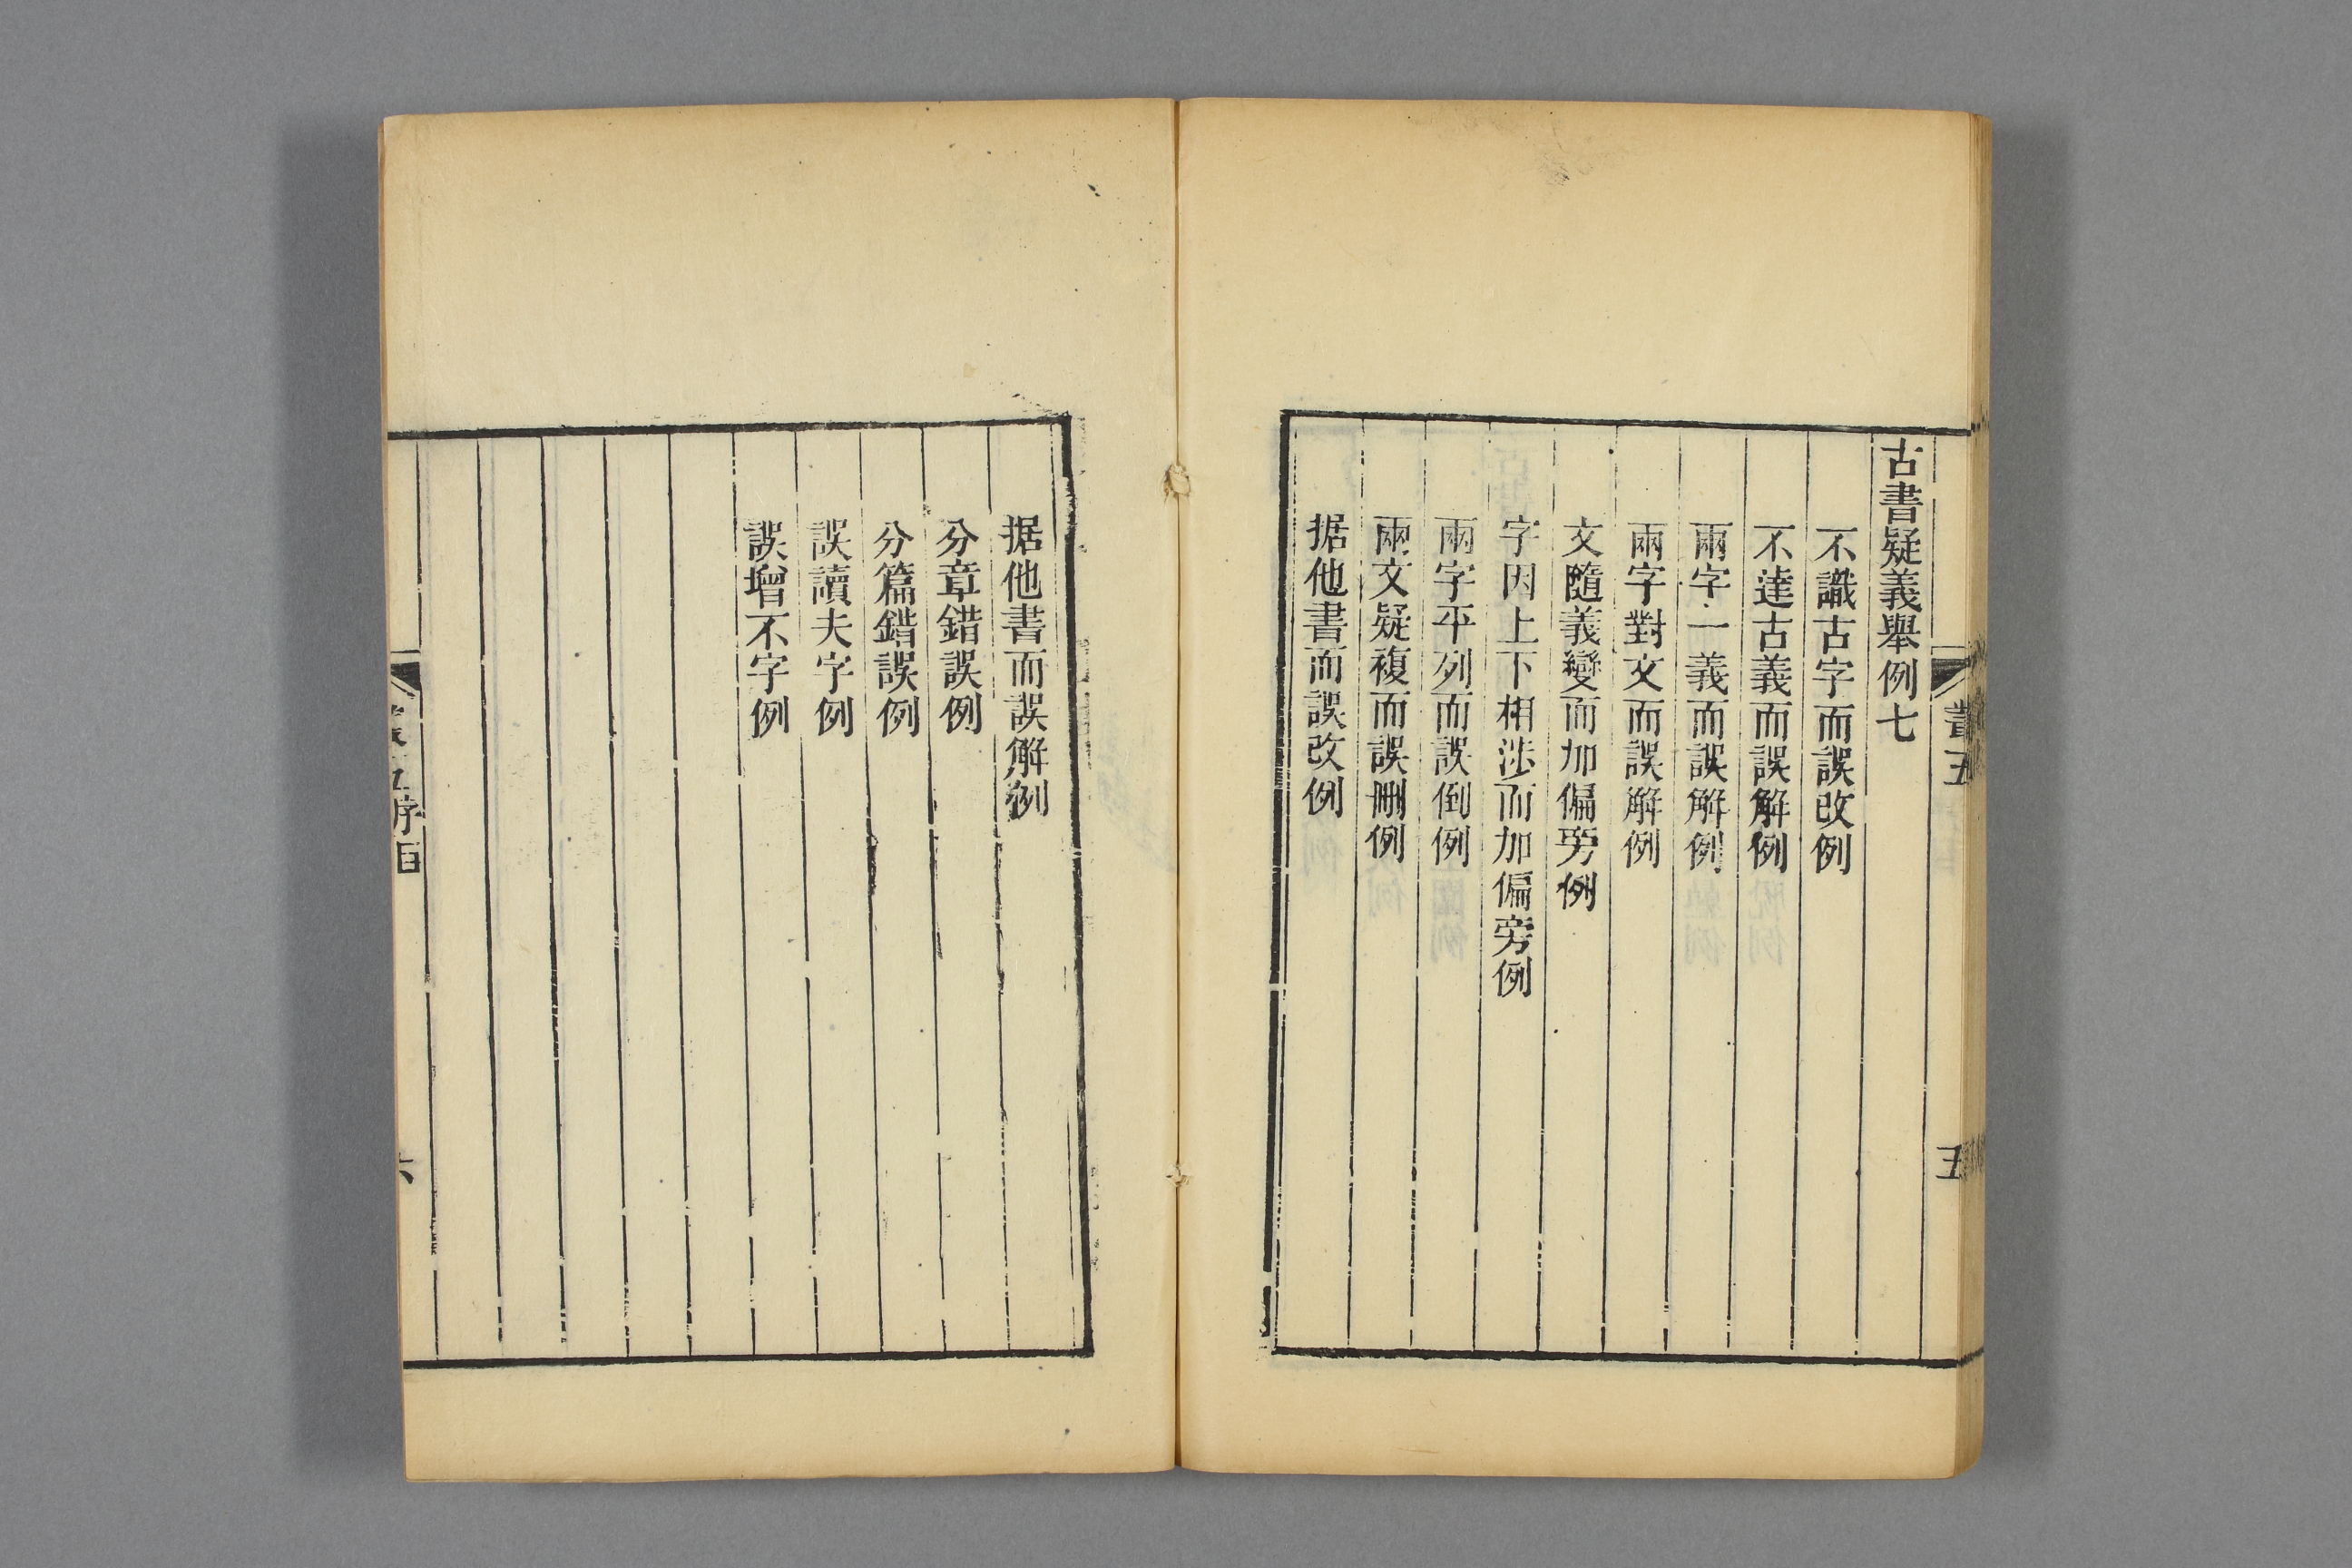 古書疑義舉例七
不識古字而誤改例
不達古義而誤解例
兩字一義而誤解例
兩字對文而誤解例
文隨義變而加偏旁例
字因上下相涉而加偏旁例
兩字平列而誤倒例
兩文疑複而誤刪例
据他書而誤改例
五
据他書而誤解例
分章錯誤例
分篇錯誤例
誤讀夫字例
誤增不字例
序目
六